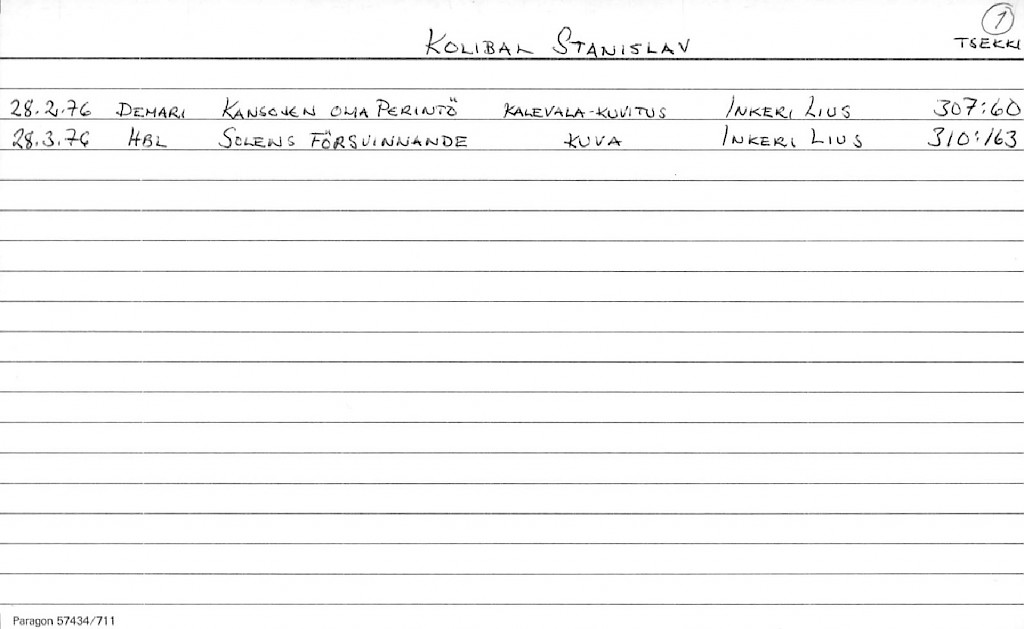 1
KOLIBAL STANISLAV TSEKKI
28.2.76 DEMARI KANSOJEN OMA PERINTÖ KALEVALA-KUVITUS INKERI LIUS 307:60
28.3.76 HBL SOLENS FÖRSVINNANDE KUVA INKERI LIUS 310:163
Paragon 57434/711